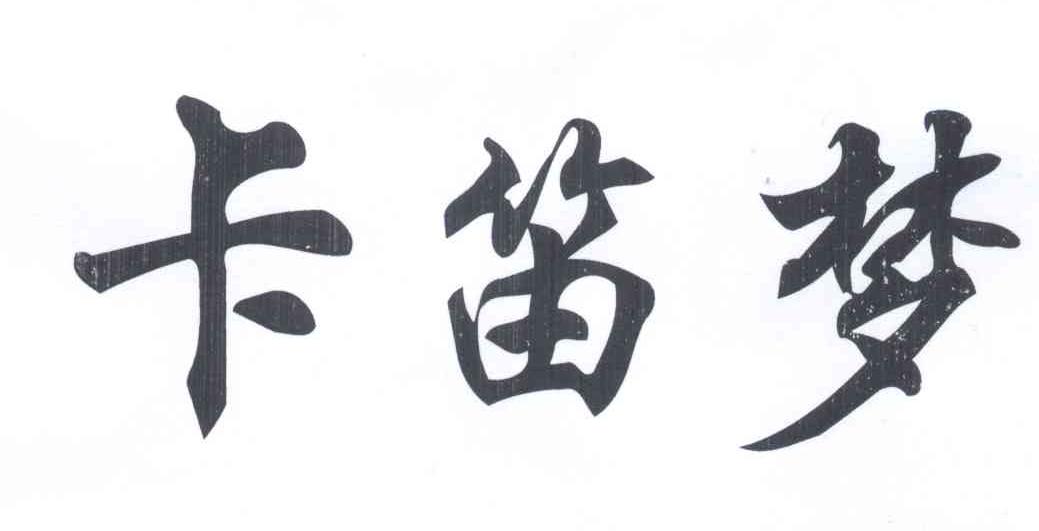 卡笛梦